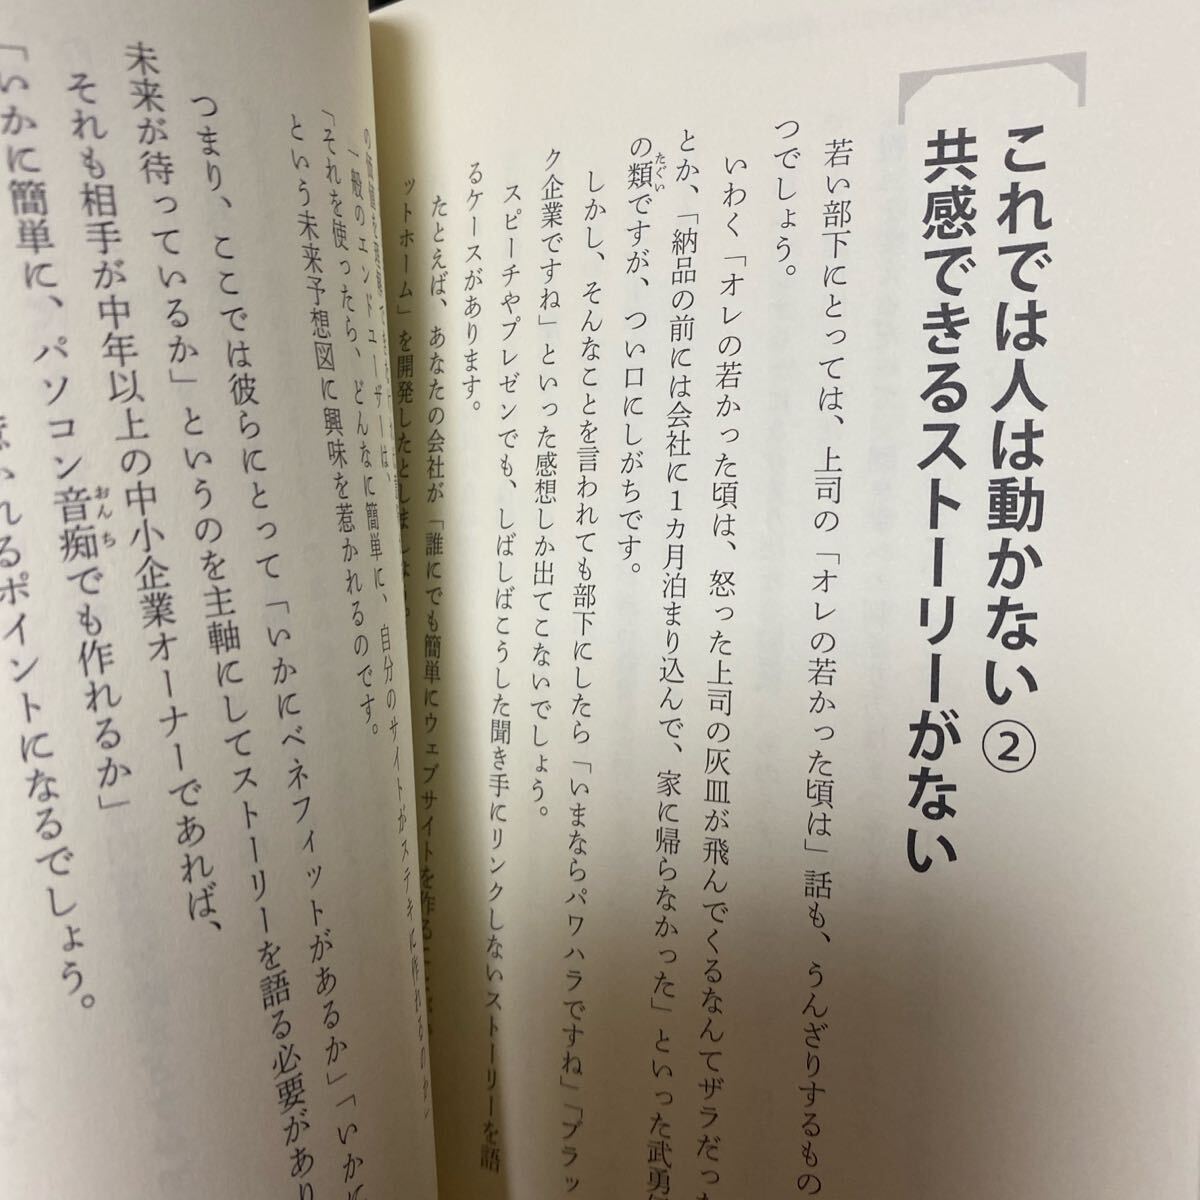 これでは人は動かない②
共感できるストーリーがない
若い部下にとっては、上司の「オレの若かった頃は」話も、うんざりするもの
つでしょう。
いわく「オレの若かった頃は、怒った上司の灰皿が飛んでくるなんてザラだっ
とか、「納品の前には会社に1カ月泊まり込んで、家に帰らなかった」といった武勇
の類ですが、つい口にしがちです。
しかし、そんなことを言われても部下にしたら「いまならパワハラですね」「ブラッ
ク企業ですね」といった感想しか出てこないでしょう。
スピーチやプレゼンでも、しばしばこうした聞き手にリンクしないストーリーを語
るケースがあります。
たとえば、あなたの会社が「誰にでも簡単にウェブサイトを作る
ットホーム」を開発したとしましょう。
の価値を
一般のエンドユーザーは、
「それを使ったら、どんなに簡単に、自分のサイトがステキに作れるのか」
という未来予想図に興味を惹かれるのです。
つまり、ここでは彼らにとって「いかにベネフィットがあるか」「いかに
未来が待っているか」というのを主軸にしてストーリーを語る必要があり
それも相手が中年以上の中小企業オーナーであれば、
「いかに簡単に、パソコン音痴でも作れるか」
れるポイントになるでしょう。